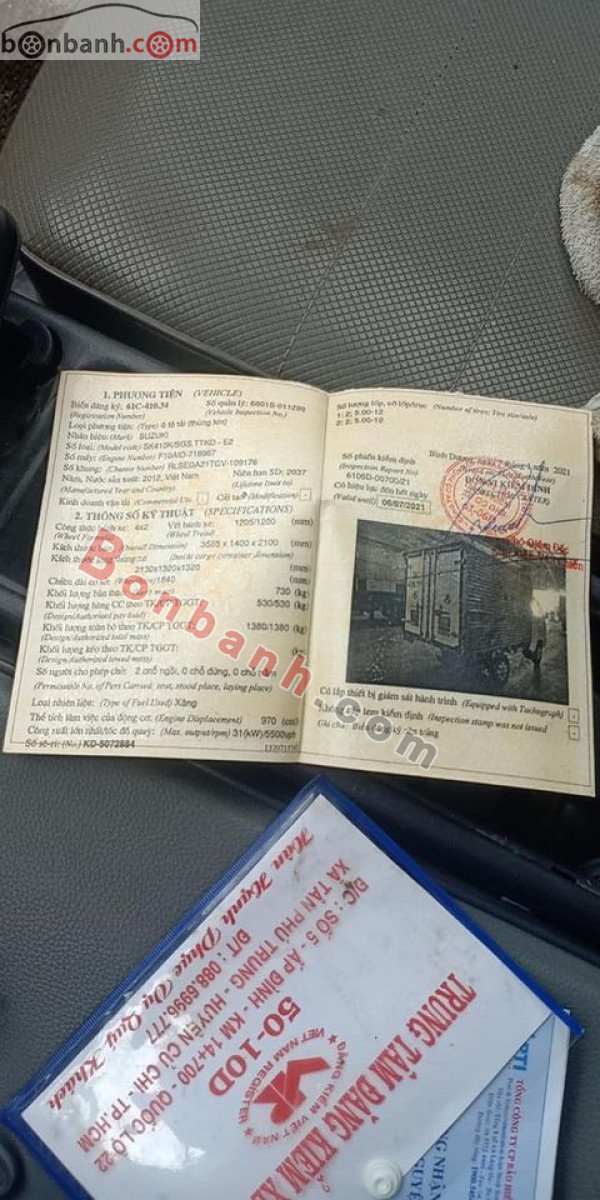 bonbanh.com
1. PHƯƠNG TIỆN (VEHICLE)
Biển đăng ký: 61C-416.34 Số quản lý: 6001S-011289
(Registration Number) (Vehicle Inspection No.)
Loại phương tiện: (Type) ô tô tải (thùng kín)
Nhãn hiệu: (Mark) SUZUKI
Số loại: (Model code) SK410K/SGS.TTKD - E2
Số máy: (Engine Number) F10AID-718967
Số khung: (Chassis Number) RLSEGA21TCV-109176
Năm, Nước sản xuất: 2012, Việt Nam Niên hạn SD: 2037
(Manufactured Year and Country) (Lifetime limit to)
Kinh doanh vận tải (Commercial Use) Cải tạo (Modification)
2. THÔNG SỐ KỸ THUẬT (SPECIFICATIONS)
Công thức bánh xe: 4x2 Vết bánh xe: 1205/1200 (mm)
(Wheel Formula) (Wheel Tread)
Kích thước bao: (Overall Dimension) 3520 x 1400 x 2100 (mm)
(Inside cargo container dimension)
2130x1320x1320 (mm)
1840 (mm)
Khối lượng bản thân 730 (kg)
Khối lượng hàng CC theo TK/CP TGGT: 530/530 (kg)
(Design/Authorized pay load)
Khối lượng toàn bộ theo TK/CP TGGT: 1380/1380 (kg)
(Design/Authorized total mass)
Khối lượng kéo theo TK/CP TGGT: (kg)
(Design/Authorized towed mass)
Số người cho phép chở: 2 chỗ ngồi, 0 chỗ đứng, 0 chỗ nằm
(Permissible No. of Pers Carried: seat, stood place, laying place)
Loại nhiên liệu: (Type of Fuel Used) Xăng
Thể tích làm việc của động cơ: (Engine Displacement) 970 (cm³)
Công suất lớn nhất/tốc độ quay: (Max. output/rpm) 31(kW)/5500vph
Số sê-ri: (No.) KD-5072884
Số lượng lốp, cỡ lốp/trục (Number of tires; Tire size/axle)
1: 2; 5.00-12
2: 2; 5.00-12
Số phiếu kiểm định
(Inspection Report No)
6106D-00700/21
Có hiệu lực đến hết ngày
(Valid until) 06/07/2021
Bình Dương, ngày 7 tháng 1 năm 2021
ĐƠN VỊ KIỂM ĐỊNH
Có lắp thiết bị giám sát hành trình (Equipped with Tachograph)
Không cấp tem kiểm định (Inspection stamp was not issued)
Ghi chú: Biển đăng ký nền trắng
Bonbanh.com
TRUNG TÂM ĐĂNG KIỂM XE
50-10D
ĐĂNG KIỂM VIỆT NAM
VIET NAM REGISTER
VR
Đ/C: SỐ 5 - ẤP ĐÌNH - KM 14+700 - QUỐC LỘ 22
XÃ TÂN PHÚ TRUNG - HUYỆN CỦ CHI - TP.HCM
ĐT: 088.6996.777
Hân Hạnh Phục Vụ Quý Khách
PTI
TỔNG CÔNG TY CP BẢO HI